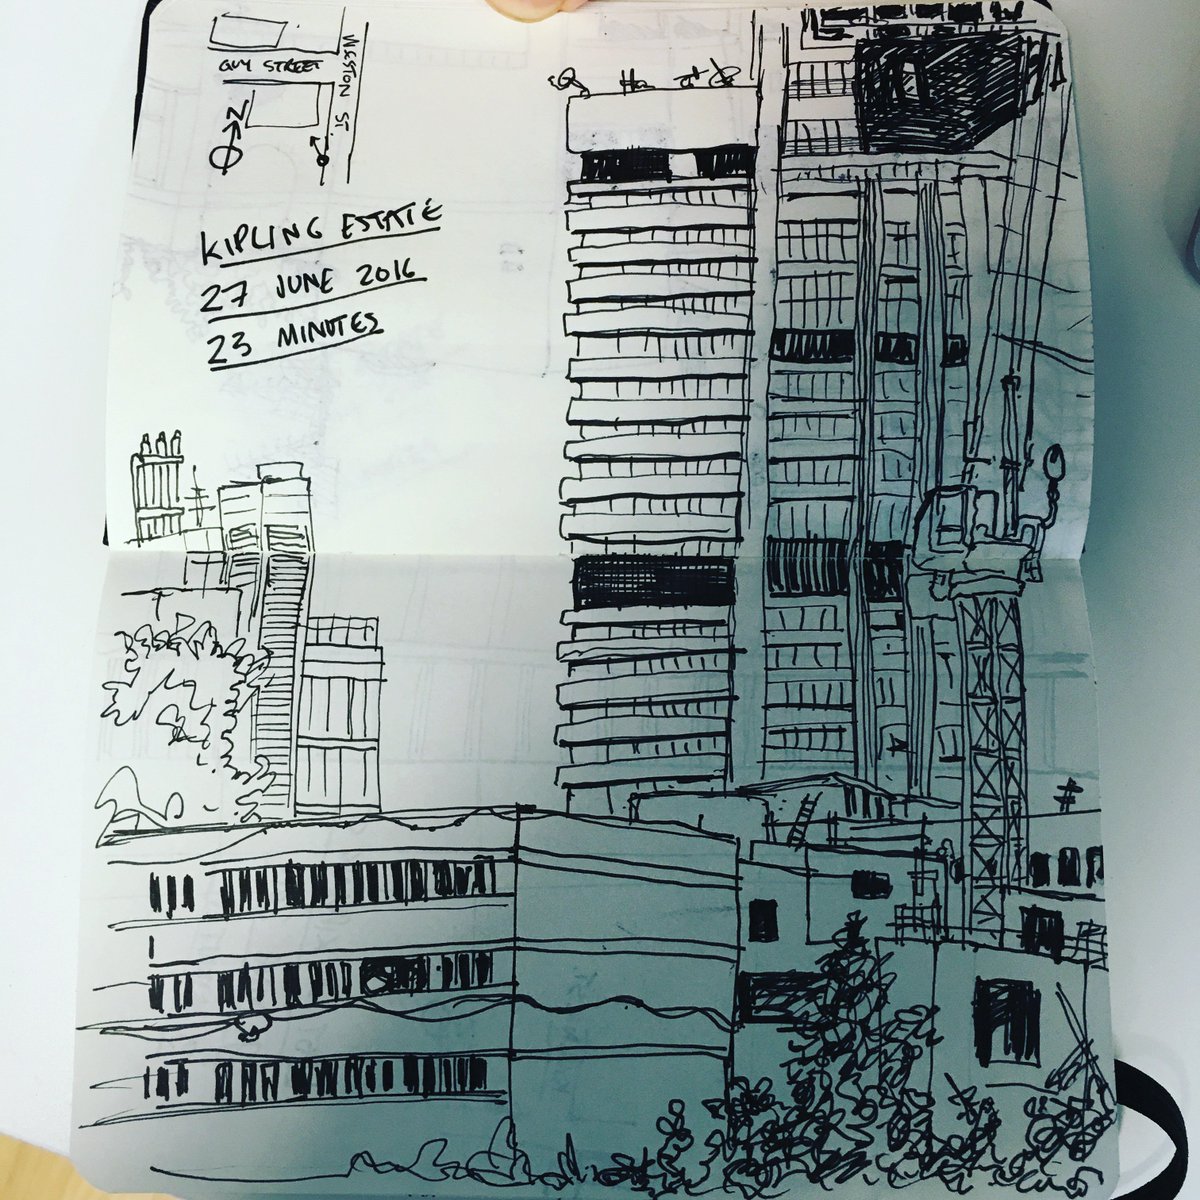 GUY STREET
WESTON ST.
N
KIPLING ESTATE
27 JUNE 2016
23 MINUTES